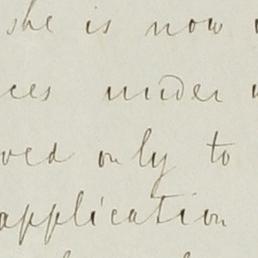 she is now
ces under
ved only to
application